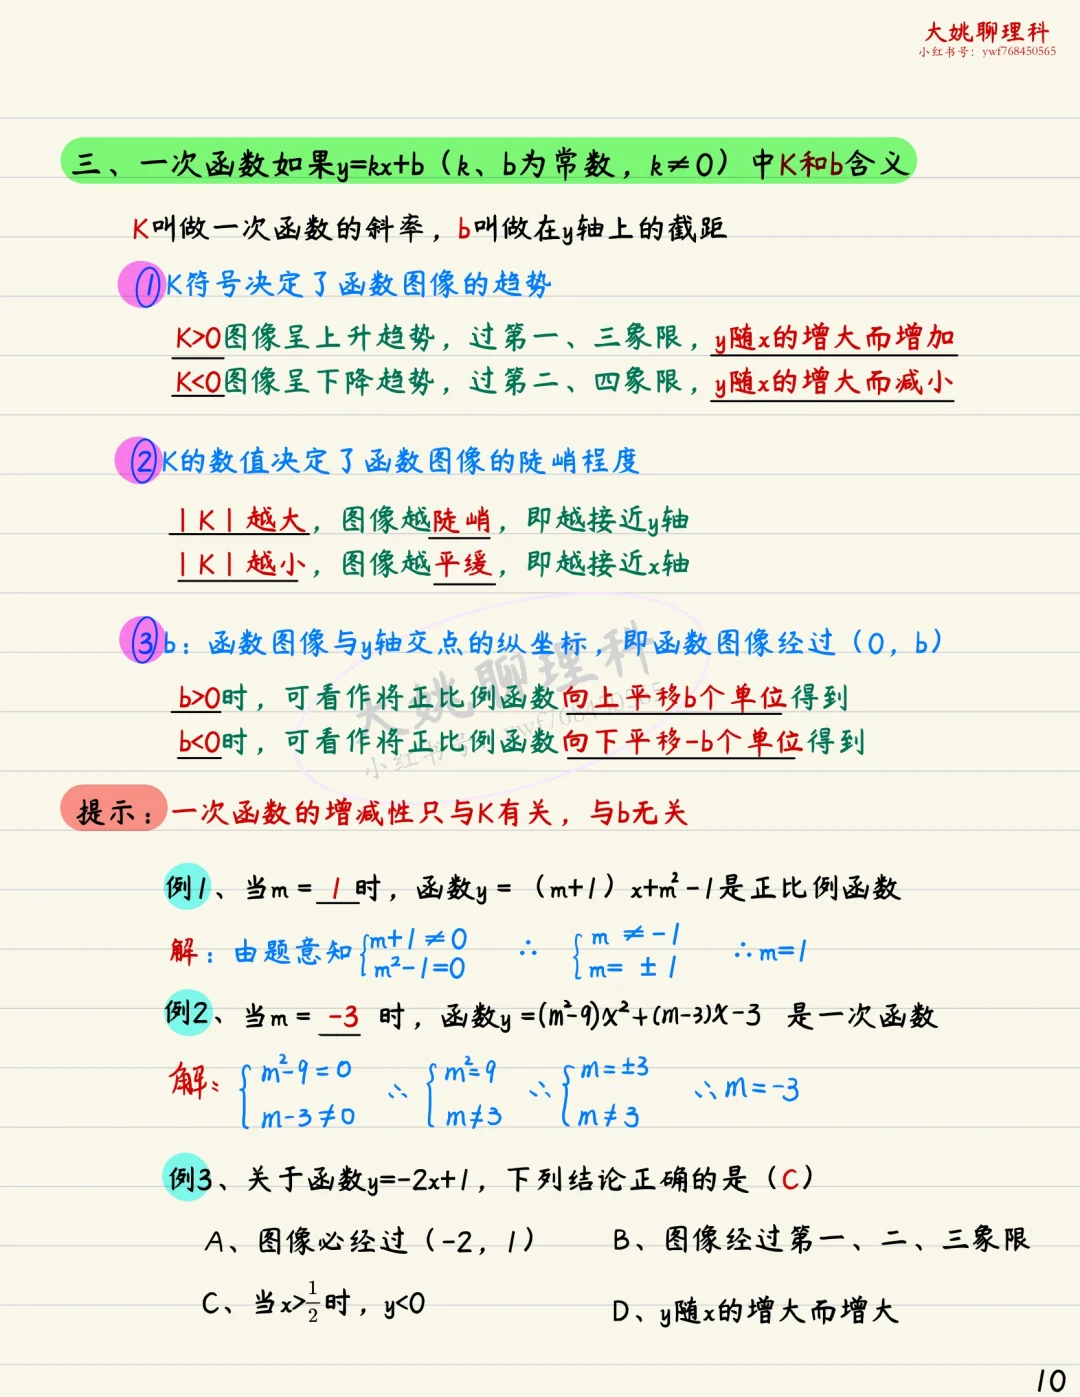 大姚聊理科
小红书号：ywf768450565
三、一次函数如果y=kx+b（k、b为常数，k≠0）中K和b含义
K叫做一次函数的斜率，b叫做在y轴上的截距
①K符号决定了函数图像的趋势
K>0图像呈上升趋势，过第一、三象限，y随x的增大而增加
K<0图像呈下降趋势，过第二、四象限，y随x的增大而减小
②K的数值决定了函数图像的陡峭程度
|K|越大，图像越陡峭，即越接近y轴
|K|越小，图像越平缓，即越接近x轴
③b：函数图像与y轴交点的纵坐标，即函数图像经过（0，b）
b>0时，可看作将正比例函数向上平移b个单位得到
b<0时，可看作将正比例函数向下平移-b个单位得到
大姚聊理科
小红书号：ywf768450565
提示：一次函数的增减性只与K有关，与b无关
例1、当m=1时，函数y=（m+1）x+m²-1是正比例函数
解：由题意知{m+1≠0 ∴ {m≠-1 ∴m=1
m²-1=0 m=±1
例2、当m=-3时，函数y=(m²-9)x²+(m-3)x-3 是一次函数
解：{m²-9=0 ∴ {m²=9 ∴ {m=±3 ∴m=-3
m-3≠0 m≠3 m≠3
例3、关于函数y=-2x+1，下列结论正确的是（C）
A、图像必经过（-2，1） B、图像经过第一、二、三象限
C、当x>1/2时，y<0 D、y随x的增大而增大
10